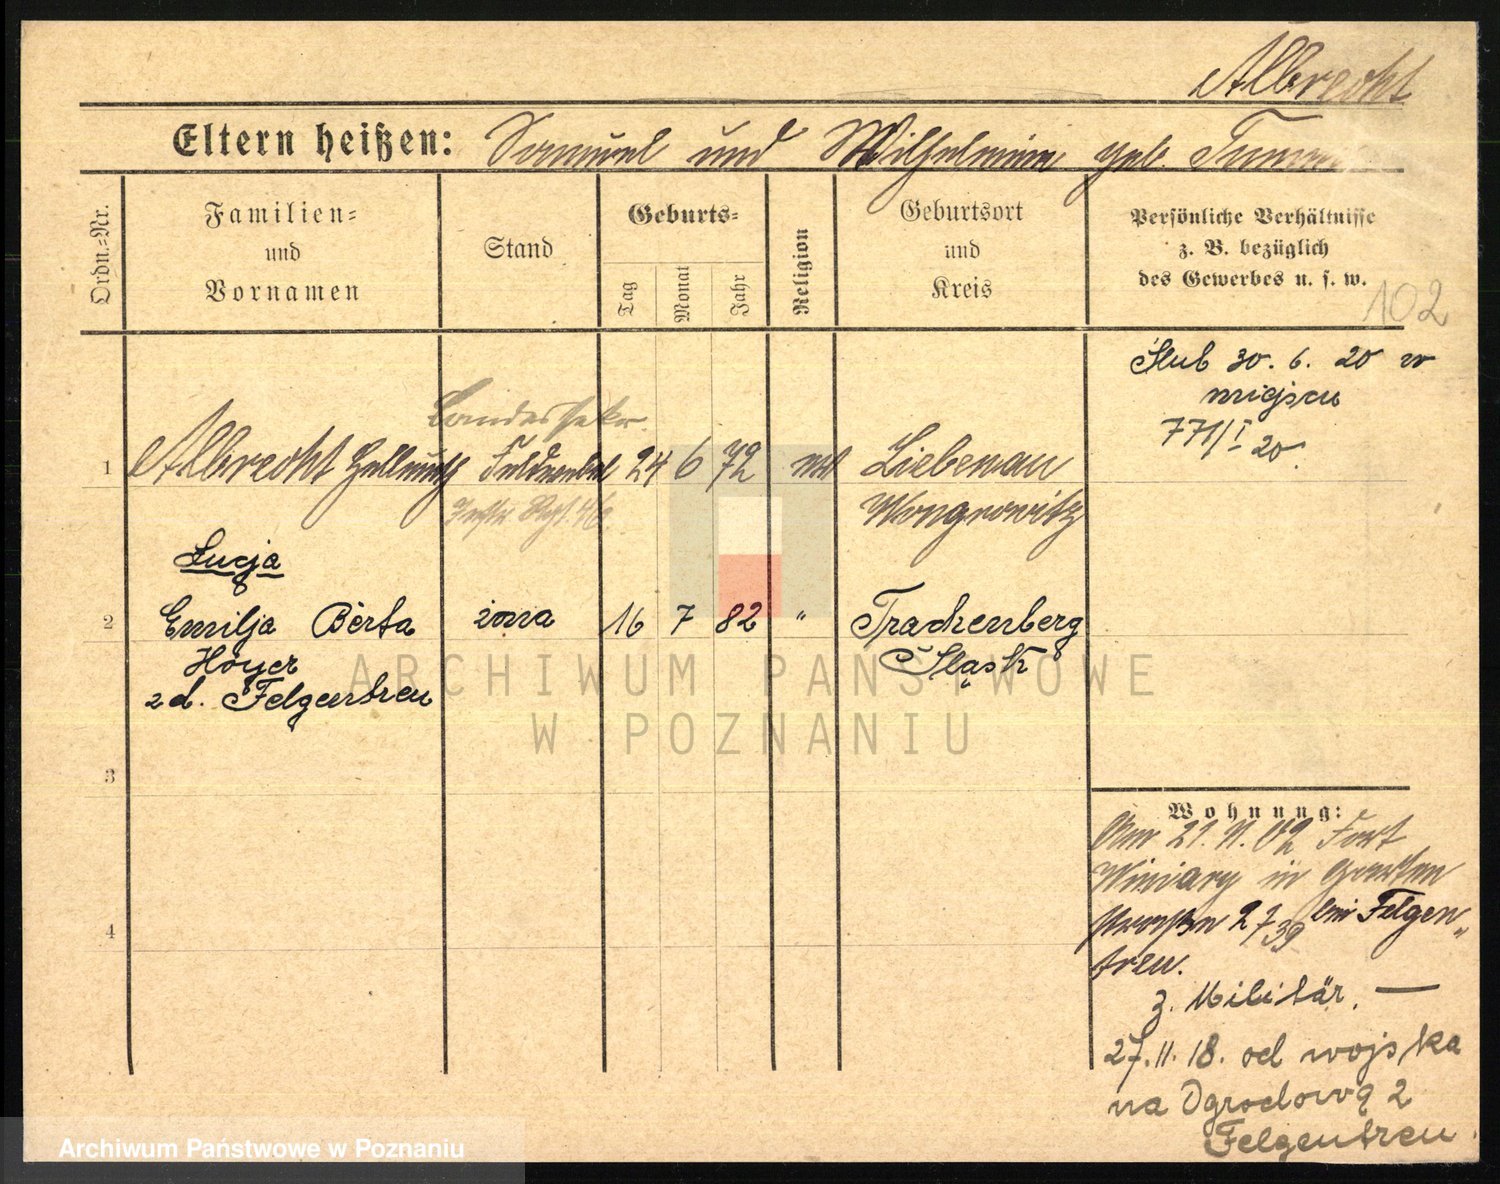 Albrecht
Eltern heißen: Samuel und Wilhelmine geb.
Ordn.-Nr.
Familien-
und
Vornamen
Stand
Geburts-
Tag
Monat
Jahr
Religion
Geburtsort
und
Kreis
Persönliche Verhältnisse
z. B. bezüglich
des Gewerbes u. s. w.
102
Ślub 30. 6. 20 w
miejscu
771/I 20.
Landessekr.
1 Albrecht Hellmuth Feldwebel 24 6 72 Liebenau
Wongrowitz
Lucja
2 Emilja Berta żona 16 7 82 " Trachenberg
Hoyer Śląsk
zd. Felgentreu
3
4
Wohnung:
Am 21. 11. 02 Fort
Winiary in Garten
straße 2 bei Felgen„
treu.
z. Militär. —
27. 11. 18. od wojska
na Ogrodową 2
Felgentreu.
ARCHIWUM PAŃSTWOWE
W POZNANIU
Archiwum Państwowe w Poznaniu